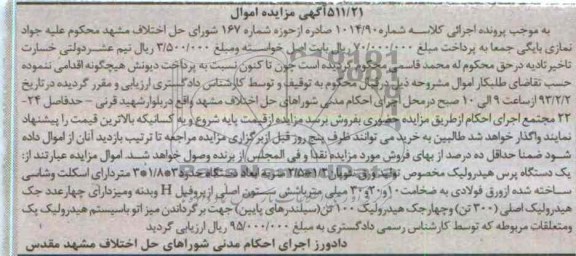 ۵۱۱/۲۱آگهی مزایده اموال
به موجب پرونده اجرائی کلاسه شماره ۱۰۱۴/۹۰ صادره ازحوزه شماره ۱۶۷ شورای حل اختلاف مشهد محکوم علیه جواد
نمازی بایگی جمعا به پرداخت مبلغ ۷۰/۰۰۰/۰۰۰ ریال بابت اصل خواسته ومبلغ ۳/۵۰۰/۰۰۰ ریال نیم عشردولتی خسارت
تاخیر تادیه درحق محکوم له محمد قاسمی محکوم گردیده است چون تا کنون نسبت به پرداخت دیونش هیچگونه اقدامی ننموده
حسب تقاضای طلبکار اموال مشروحه ذیل محکوم به توقیف و توسط کارشناس دادگستری ارزیابی و مقرر گردیده درتاریخ
۹۳/۲/۲ ازساعت ۹ الی ۱۰ صبح درمحل اجرای احکام مدنی شوراهای حل اختلاف مشهد واقع دربلوارشهید قرنی – حدفاصل ۲۴-
۲۲ مجتمع اجرای احکام ازطریق مزایده حضوری بفروش برسد مزایده ازقیمت پایه شروع و به کسانیکه بالاترین قیمت را پیشنهاد
نمایند واگذار خواهد شد طالبین به خرید می توانند ظرف پنج روز قبل ازبرگزاری مزایده مراجعه تا ترتیب بازدید آنان از اموال داده
شود ضمنا حداقل ده درصد از بهای فروش مورد مزایده نقدا و فی المجلس از برنده وصول خواهد شد. اموال مزایده عبارتند از:
یک دستگاه پرس هیدرولیک مخصوص تولید ورق ابعاد دستگاه حدود متر دارای اسکلت وشاسی
ساخته شده ازورق فولادی به ضخامت ۱۰و۲۰و۳۰ میلی متر باشش ستون اصلی ازپروفیل H وبدنه ومیز دارای چهارعدد جک
هیدرولیک اصلی (۳۰۰ تن) وچهار جک هیدرولیک ۱۰۰ تن (سیلندرهای پایین) جهت برگرداندن میز اتو باسیستم هیدرولیک یک
ومتعلقات مربوطه که توسط کارشناس رسمی دادگستری به مبلغ ۹۵/۰۰۰/۰۰۰ ریال ارزیابی گردید
دادورز اجرای احکام مدنی شوراهای حل اختلاف مشهد مقدس